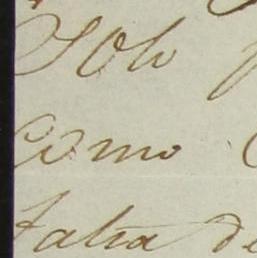 Solo
como
falta de